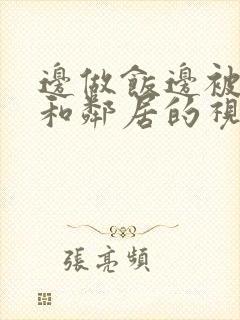 邊做飯邊被
和鄰居的視
張亮頻